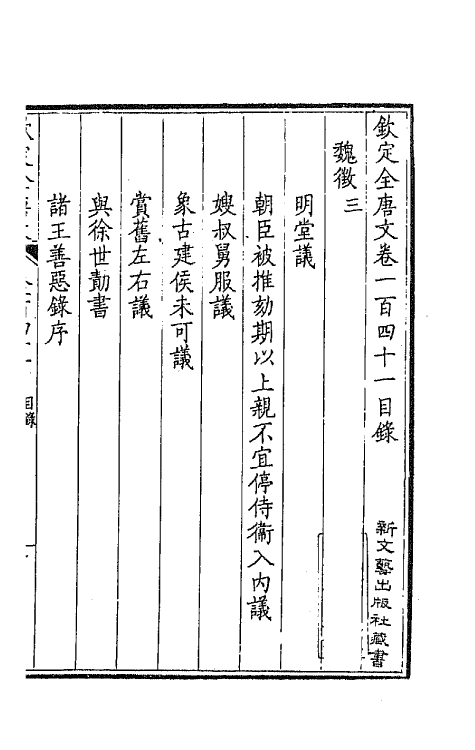 欽定全唐文卷一百四十一目錄
新文藝出版社藏書
魏徵三
明堂議
朝臣被推劾期以上親不宜停侍衞入內議
嫂叔舅服議
象古建侯未可議
賞舊左右議
與徐世勣書
諸王善惡錄序
目錄